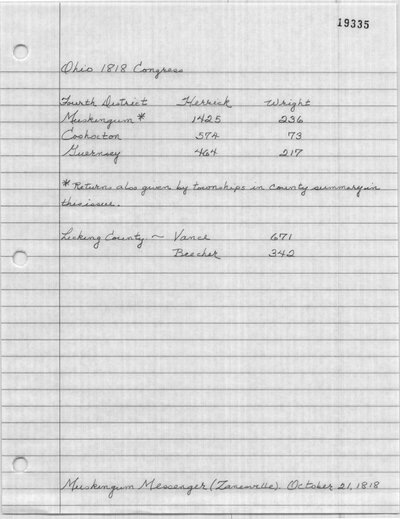 19335
Ohio 1818 Congress
Fourth District Herrick Wright
Muskingum * 1425 236
Coshocton 574 73
Guernsey 464 217
* Returns also given by townships in county summary in
this issue.
Licking County ~ Vance 671
Beecher 342
Muskingum Messenger (Zanesville). October 21, 1818